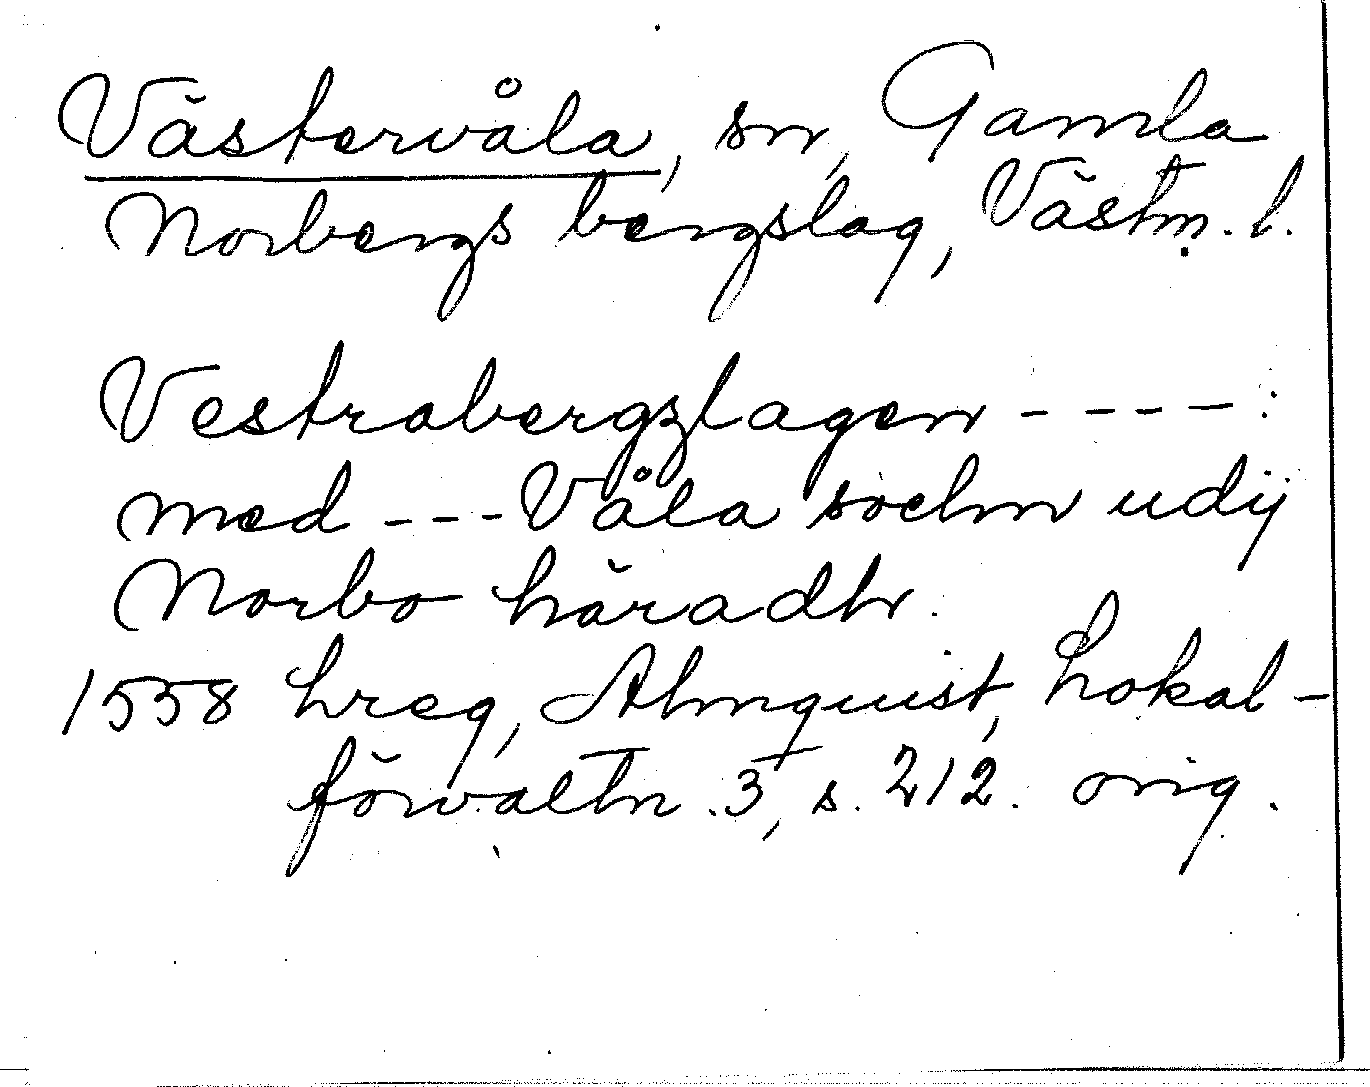 Västervåla, sn, Gamla
Norbergs bergslag, Västm. l.
Vestrabergzlagen ---- :
med --- Våla sochn udij
Norbo häradh.
1558 hreg, Almquist, Lokal-
förvaltn. 3, s. 212. orig.